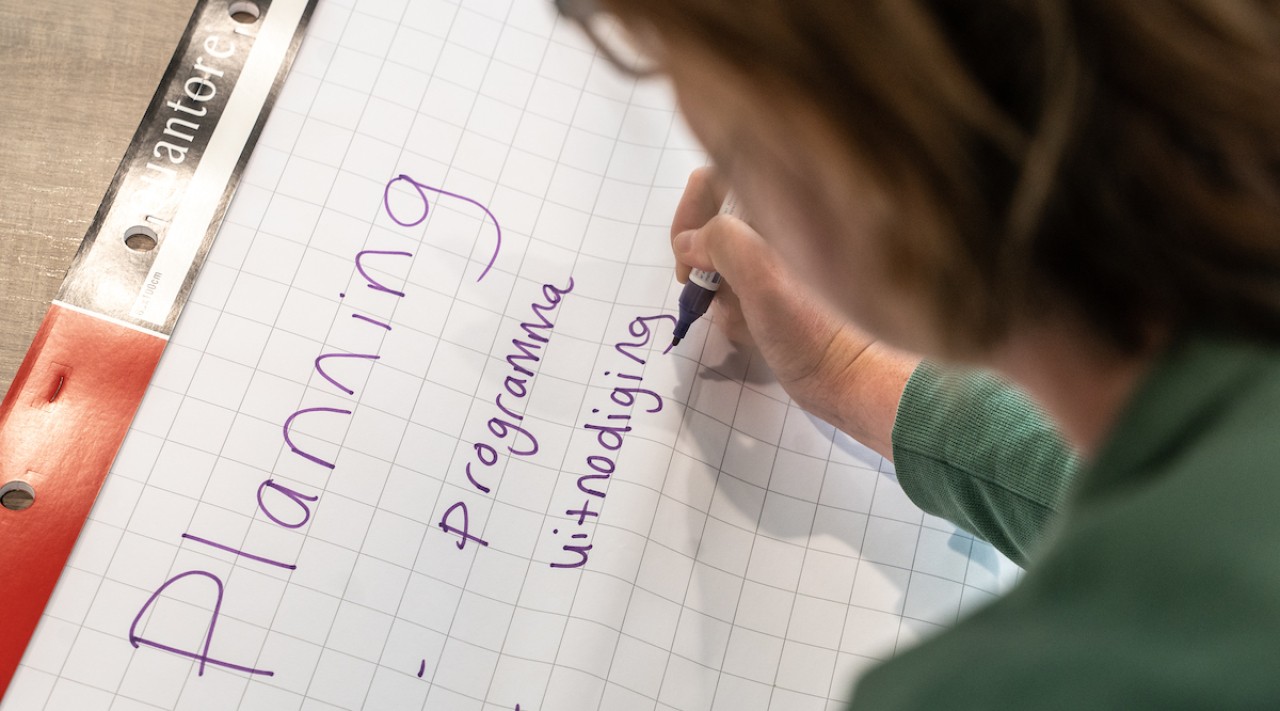 Quantore
Planning
- programma
- uitnodiging